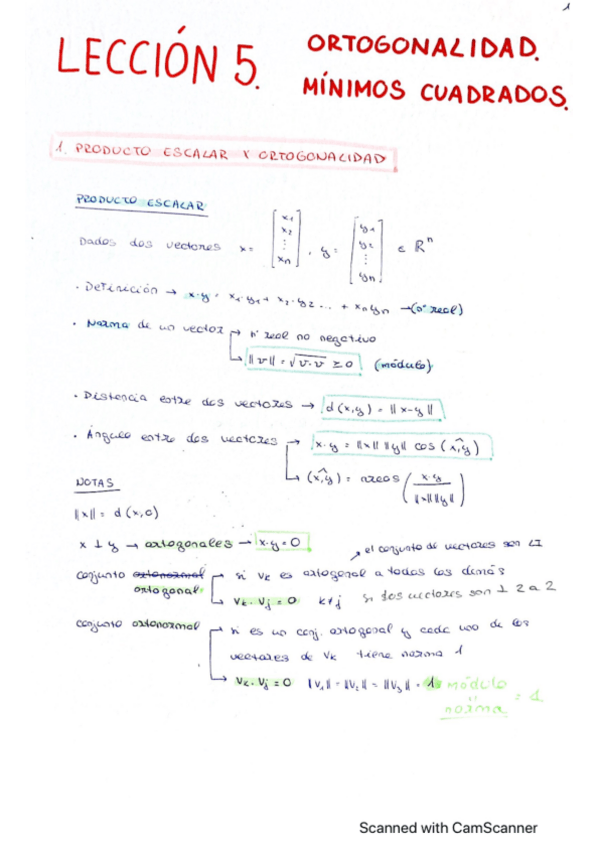 1
LECCIÓN 5. ORTOGONALIDAD.
MÍNIMOS CUADRADOS.
1. PRODUCTO ESCALAR Y ORTOGONALIDAD
PRODUCTO ESCALAR
Dados dos vectores x = [x1 x2 ⋮ xn], y = [y1 y2 ⋮ yn] ∈ ℝⁿ
· Definición → x·y = x1·y1 + x2·y2 ... + xn yn → (nº real)
· Norma de un vector → nº real no negativo
→ ||v|| = √v·v ≥ 0 (módulo)
· Distancia entre dos vectores → d(x,y) = ||x-y||
· Ángulo entre dos vectores → x·y = ||x|| ||y|| cos(x,y)
→ (x,y) = arcos (x·y / ||x|| ||y||)
NOTAS
||x|| = d(x,0)
x ⊥ y → ortogonales → x·y = 0
el conjunto de vectores son LI
conjunto ortonormal → si vk es ortogonal a todos los demás
ortogonal → vk · vj = 0 k≠j si dos vectores son ⊥ 2 a 2
conjunto ortonormal → si es un conj. ortogonal y cada uno de los
vectores de vk tiene norma 1
→ vk · vj = 0 ||v1|| = ||v2|| = ||v3|| = 1 módulo
norma = 1
Scanned with CamScanner